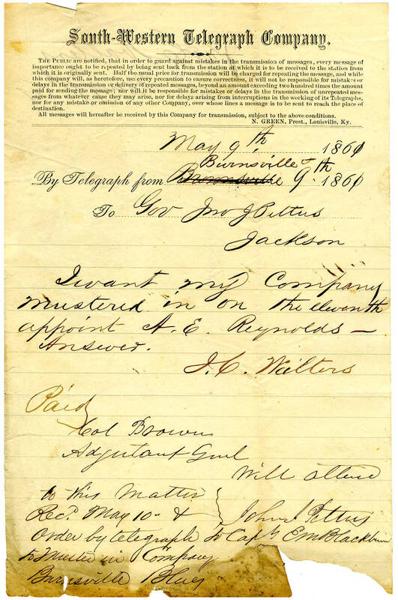 South-Western Telegraph Company.
THE PUBLIC are notified, that in order to guard against mistakes in the transmission of messages, every message of
importance ought to be repeated by being sent back from the station at which it is to be received to the station from
which it is originally sent. Half the usual price for transmission will be charged for repeating the message, and while
this company will, as heretofore, use every precaution to ensure correctness, it will not be responsible for mistakes or
delays in the transmission or delivery of repeated messages, beyond an amount exceeding two hundred times the amount
paid for sending the message; nor will it be responsible for mistakes or delays in the transmission of unrepeated messages
from whatever cause they may arise, nor for delays arising from interruptions in the working of its Telegraphs,
nor for any mistake or omission of any other Company, over whose lines a message is to be sent to reach the place of
destination.
All messages will hereafter be received by this Company for transmission, subject to the above conditions.
N. GREEN, Prest., Louisville, Ky.
May 9th 1861
Burnsville
By Telegraph from 9th 1861
To Gov Jno J Pettus
Jackson
I want my Company
mustered in on the eleventh
appoint A. E. Reynolds —
Answer.
J. C. Walters
Paid
Col Brown
Adjutant Genl
Will attend
to this Matter
John J Pettus
Recd May 10 &
Order by telegraph to Capt E M Blackburn
to Muster in Company
Burnsville Blues